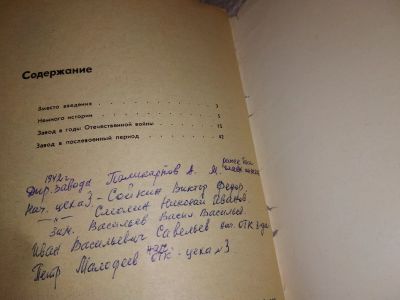 Содержание
Вместо введения 3
Немного истории 5
Завод в годы Отечественной войны 15
Завод в послевоенный период 42
1942 г
Дир. завода Поликарпов А. М. ранее был
Нач. цеха 3 - Сойкин Виктор Федор.
—"— Смолин Николай Иванов
зам. Васильев Васил Васильев
Иван Васильевич Савельев нач. ОТК з-да
Петр Малодеев ОТК - цеха №3